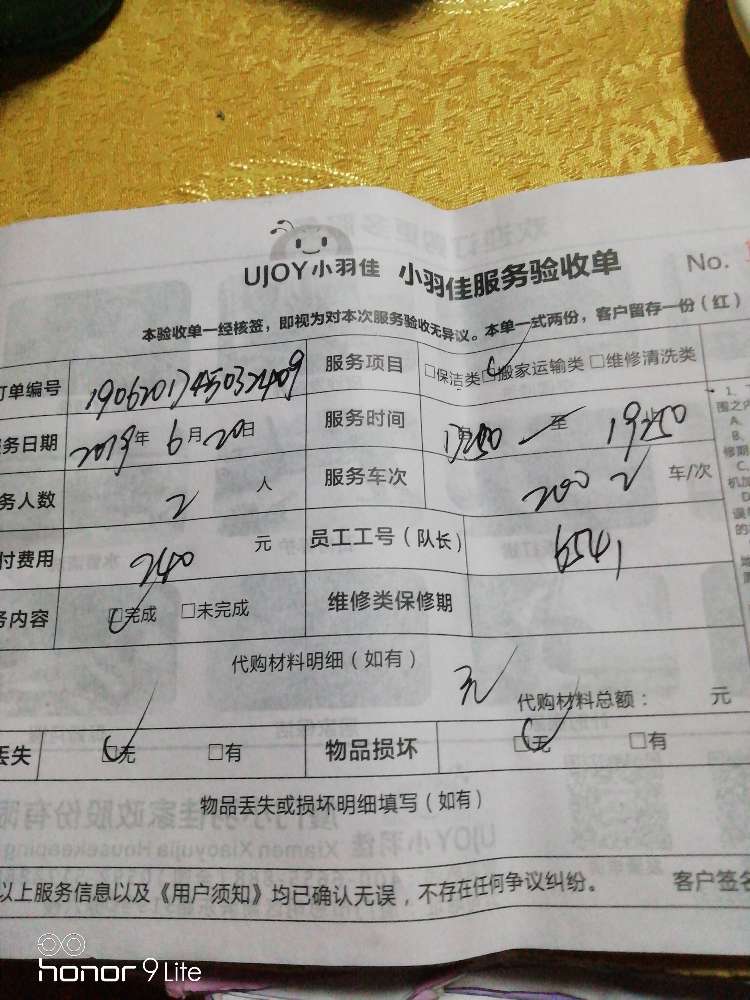 UJOY小羽佳 小羽佳服务验收单 No.
本验收单一经核签，即视为对本次服务验收无异议。本单一式两份，客户留存一份（红）
订单编号 服务项目 □保洁类 □搬家运输类 □维修清洗类
务日期 2019年 6月 20日 服务时间 至 19:50
务人数 2 人 服务车次 200 2 车/次
付费用 240 元 员工工号（队长） 6541
务内容 □完成 □未完成 维修类保修期
代购材料明细（如有）
无 代购材料总额： 元
丢失 □无 □有 物品损坏 □无 □有
物品丢失或损坏明细填写（如有）
以上服务信息以及《用户须知》均已确认无误，不存在任何争议纠纷。 客户签名
honor 9 Lite